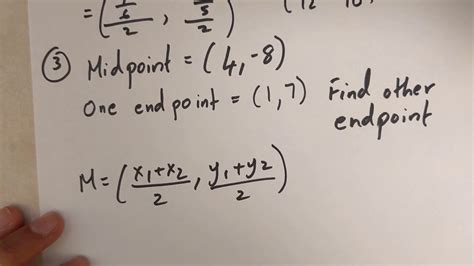 = (1/6/2, 5/2) (12 10,
③ Midpoint = (4, -8)
One endpoint = (1, 7) Find other
endpoint
M = (x₁+x₂/2, y₁+y₂/2)